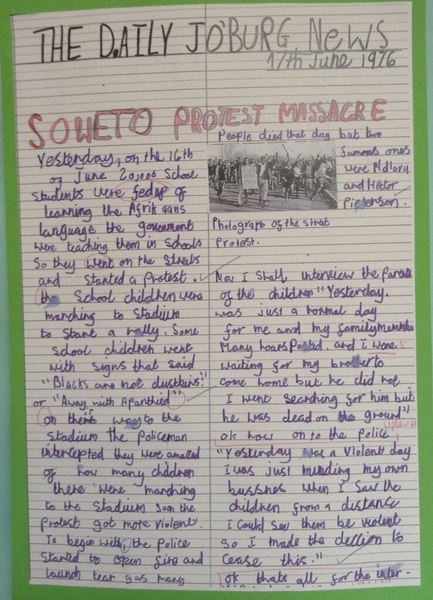 THE DAILY JO'BURG NeWS
17th June 1976
SOWETO PROTEST MASSACRE
Yesterday, on the 16th
of June 20,000 School
students were fedup of
learning the Afrikaans
language the government
were teaching them in schools
So they went on the streets
and started a protest.
the School children were
marching to Stadium
to start a rally. Some
school children went
with signs that said
"Blacks are not dustbins!"
or "Away with Apartheid"
on their way to the
stadium the policeman
intercepted they were amazed
of how many children
there were marching
to the Stadium soon the
Protest got more violent.
To begin with, the Police
started to open fire and
launch tear gas many
People died that day but two
famous ones
were
and Hector
Pieterson.
Photograph of the street
Protest.
Now I Shall interview the Parents
of the children "Yesterday.
was just a normal day
for me and my family
Many hours Passed. and I were
waiting for my brother to
come home but he did not
I went searching for him but
he was dead on the ground"
ok now on to the Police
"Yesterday was a Violent day
I was just minding my own
when I saw the
children from a distance
I could see them be violent
so I made the
Cease this."
ok thats all for the inter-